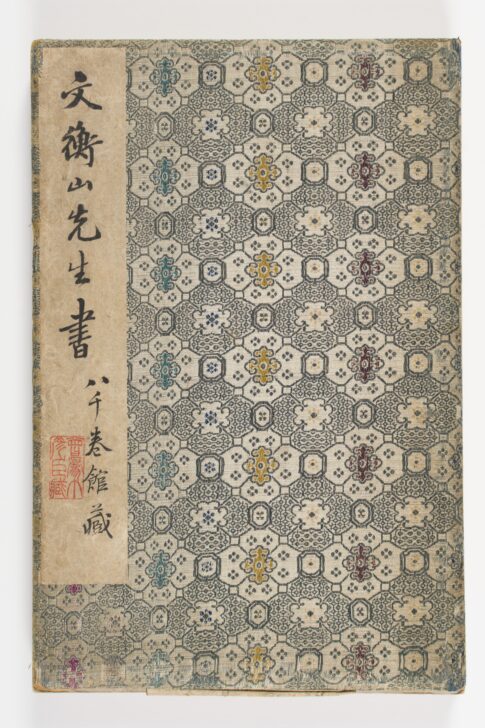 文衡山先生書
八千卷館藏